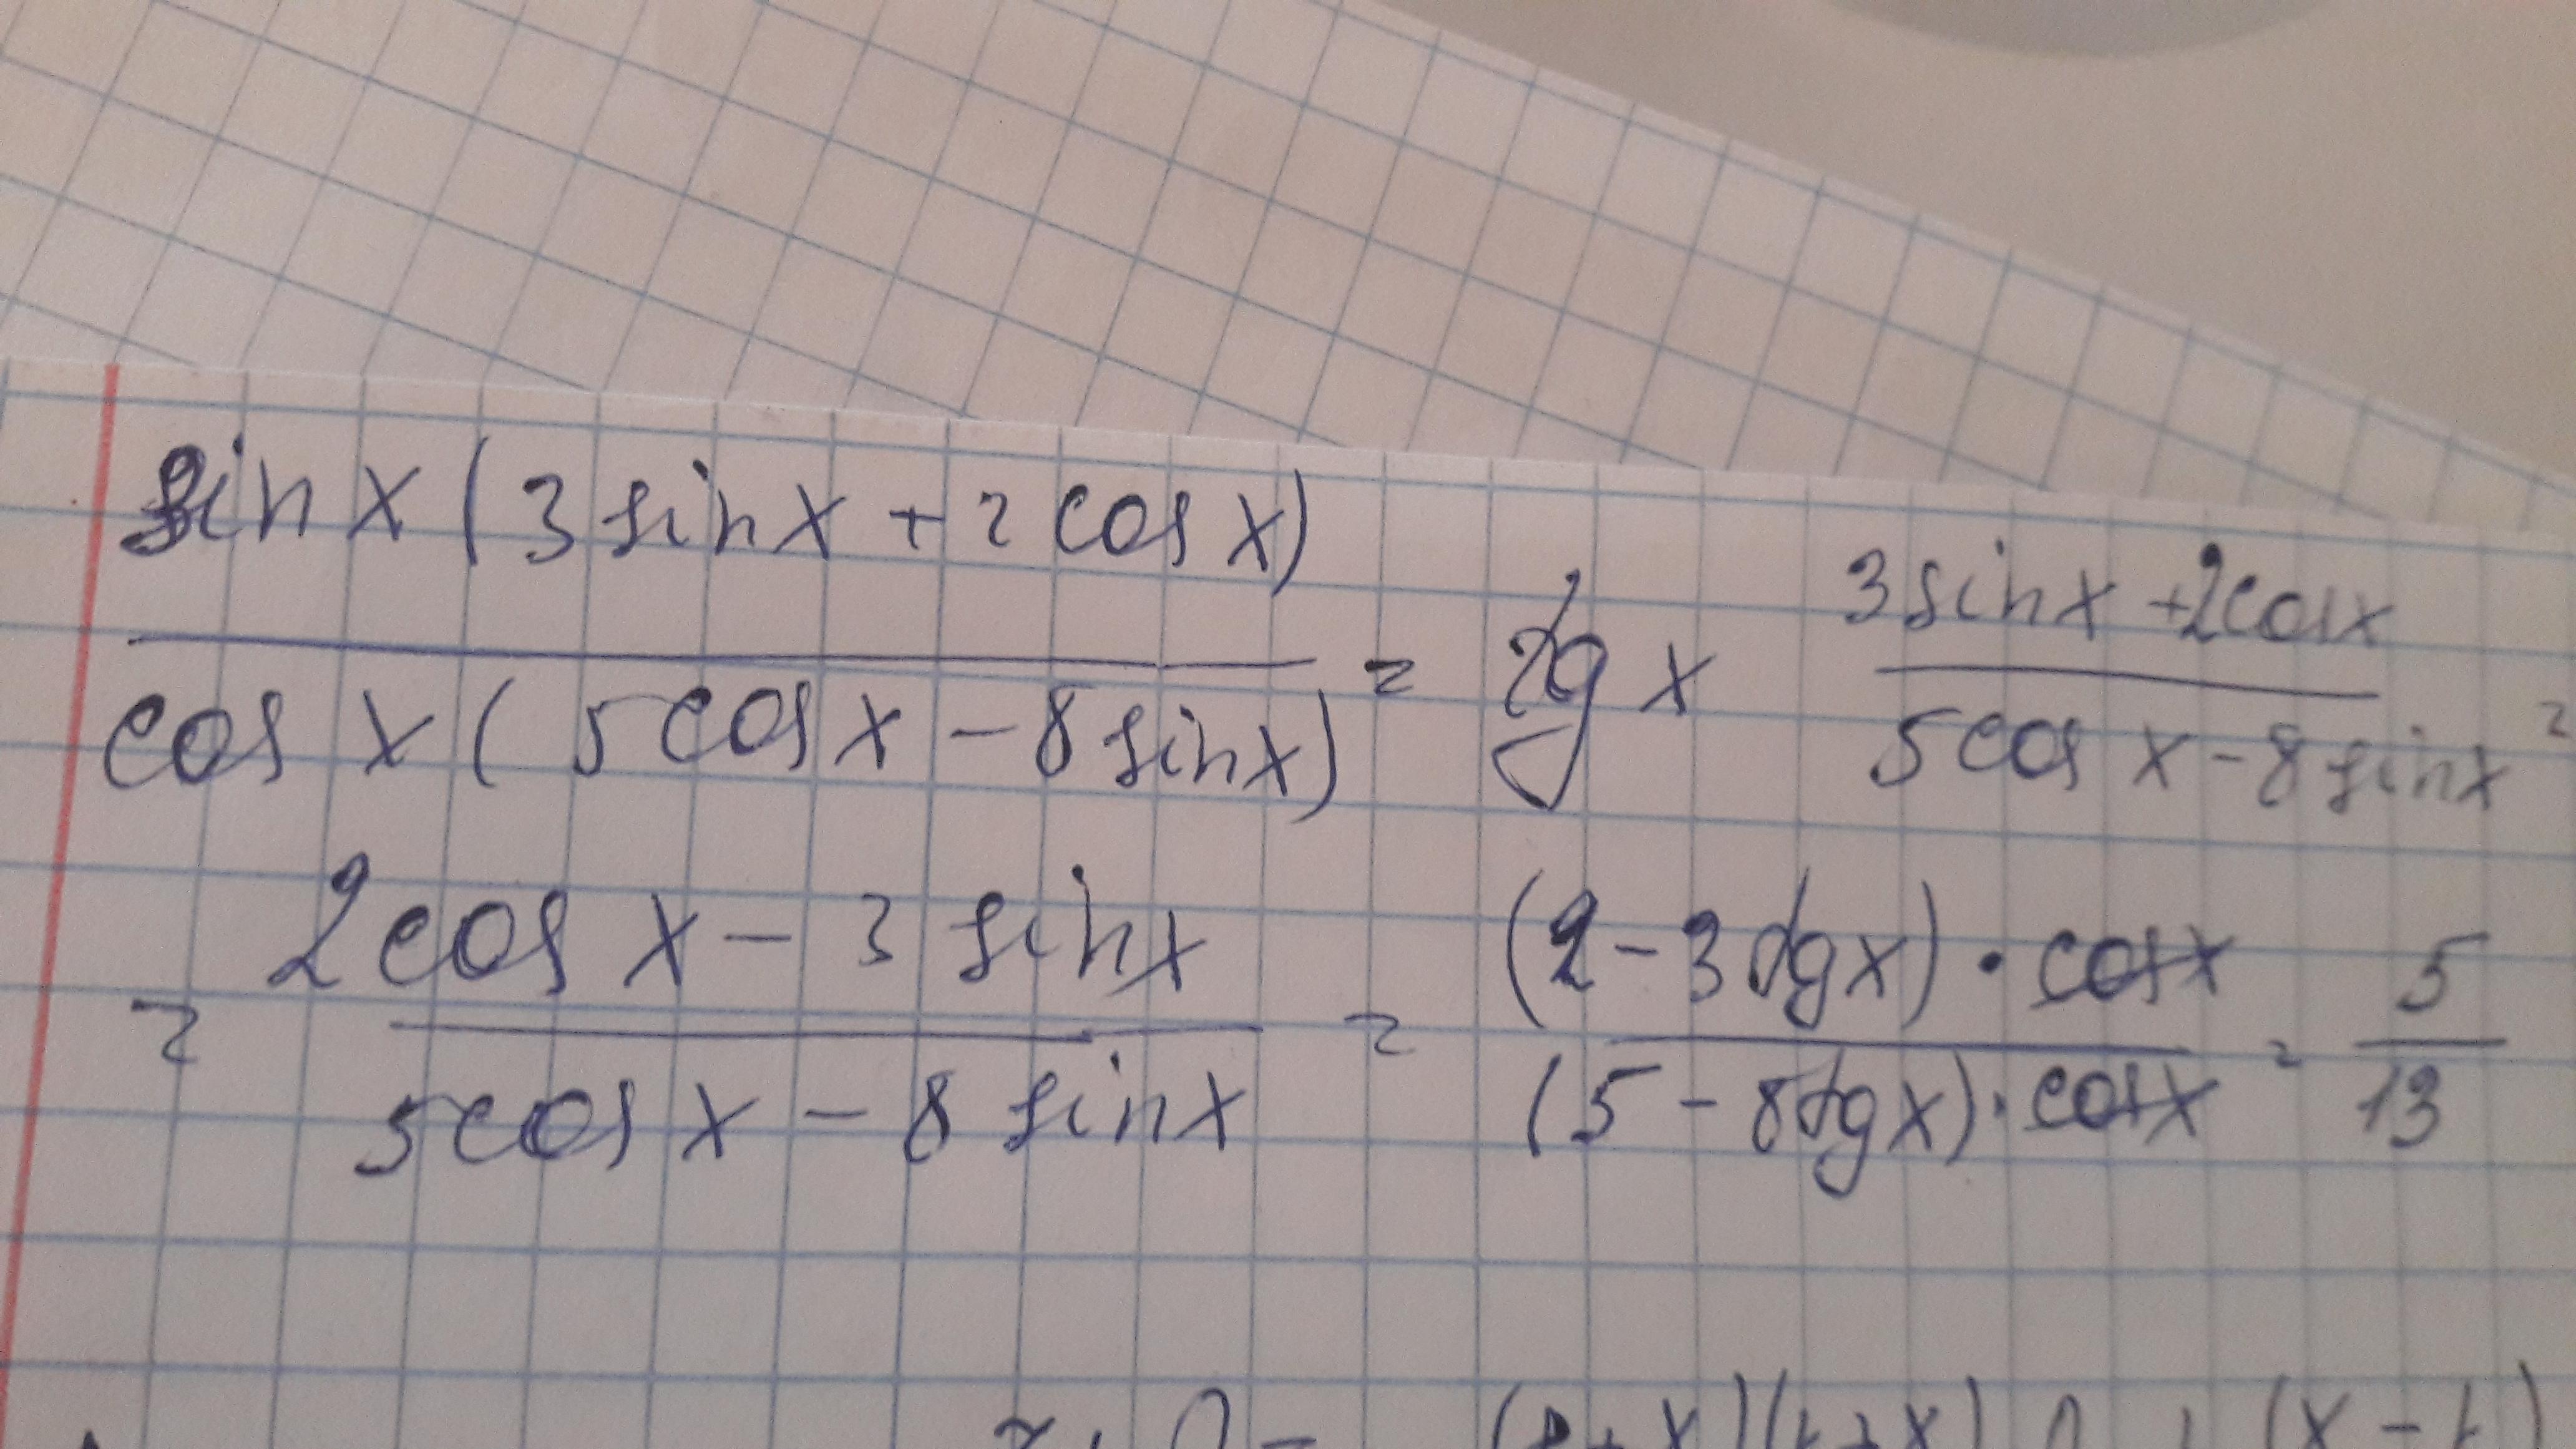 sin x (3 sin x + 2 cos x) / cos x (5 cos x - 8 sin x) = tg x (3 sin x + 2 cos x) / (5 cos x - 8 sin x) =
= (2 cos x - 3 sin x) / (5 cos x - 8 sin x) = (2 - 3 tg x) · cos x / (5 - 8 tg x) · cos x = 5 / 13